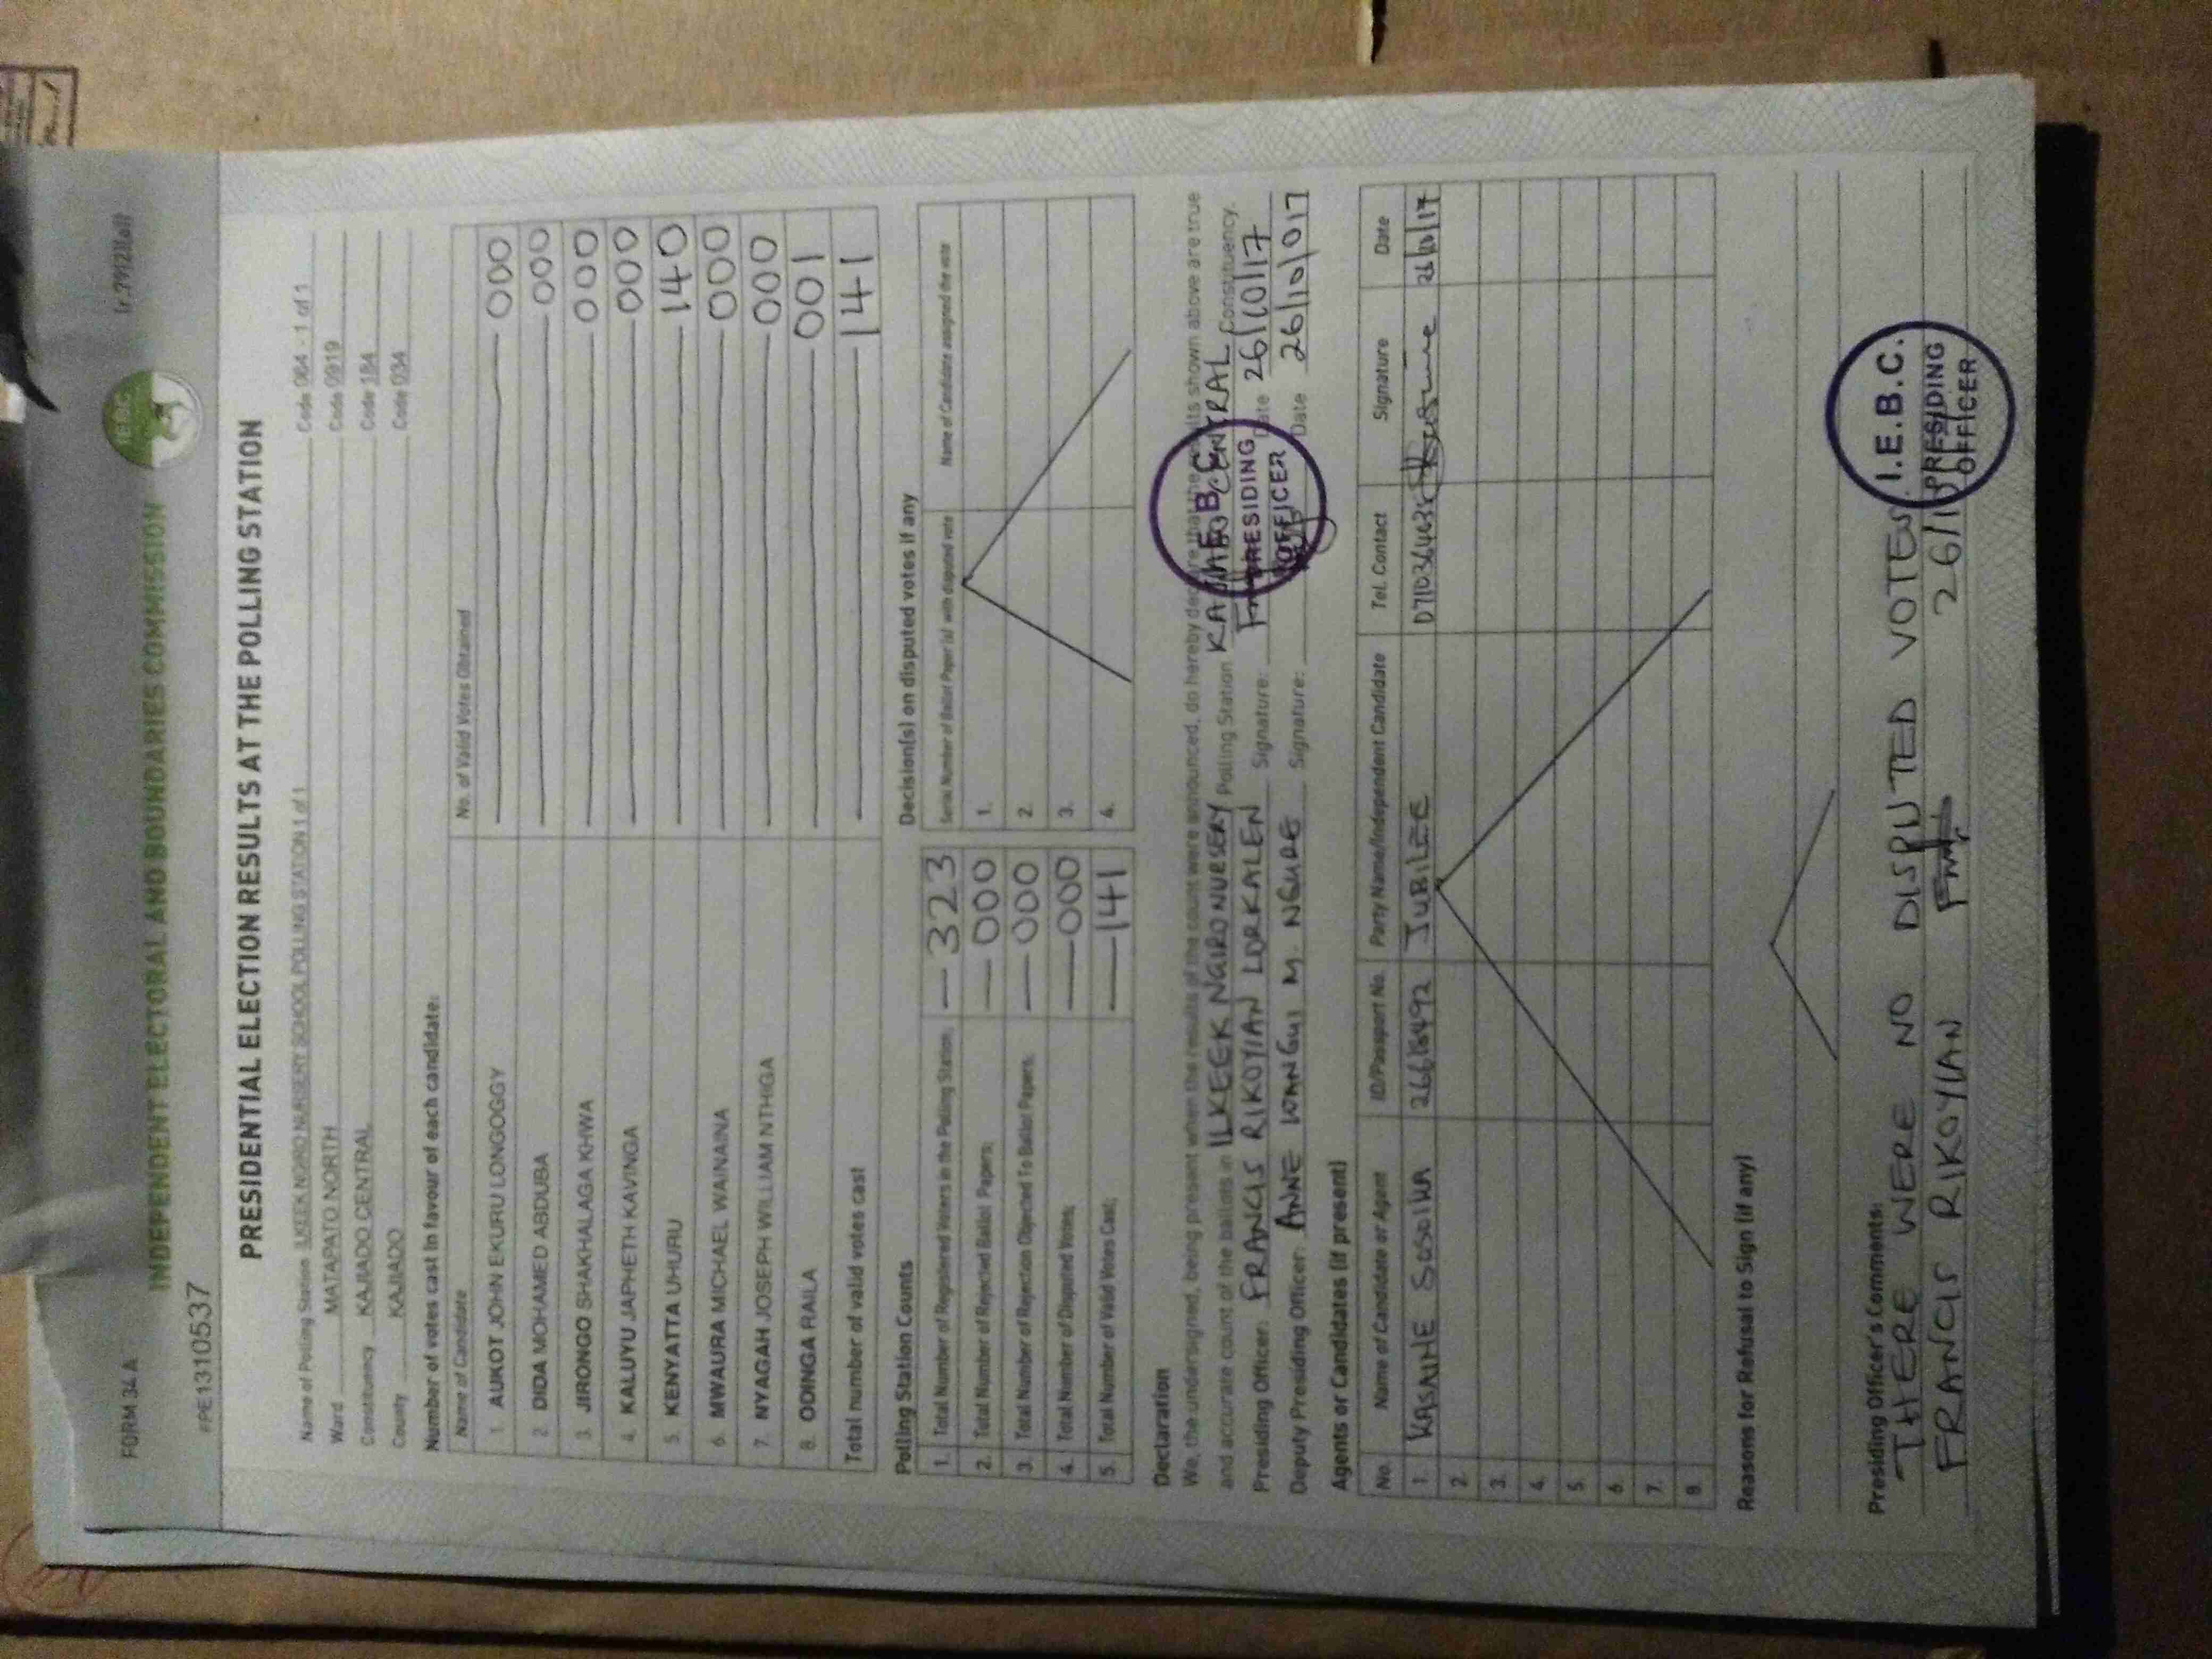 FORM 34 A
INDEPENDENT ELECTORAL AND BOUNDARIES COMMISSION
#PE1310537
PRESIDENTIAL ELECTION RESULTS AT THE POLLING STATION
Name of Polling Station ILKEEK NGIRO NURSERY SCHOOL POLLING STATION 1 of 1 Code 064 - 1 of 1
Ward MATAPATO NORTH Code 0919
Constituency KAJIADO CENTRAL Code 184
County KAJIADO Code 034
Number of votes cast in favour of each candidate:
Name of Candidate No. of Valid Votes Obtained
1. AUKOT JOHN EKURU LONGOGGY 000
2. DIDA MOHAMED ABDUBA 000
3. JIRONGO SHAKHALAGA KHWA 000
4. KALUYU JAPHETH KAVINGA 000
5. KENYATTA UHURU 140
6. MWAURA MICHAEL WAINAINA 000
7. NYAGAH JOSEPH WILLIAM NTHIGA 000
8. ODINGA RAILA 001
Total number of valid votes cast 141
Polling Station Counts
1. Total Number of Registered Voters in the Polling Station; 323
2. Total Number of Rejected Ballot Papers; 000
3. Total Number of Rejection Objected To Ballot Papers; 000
4. Total Number of Disputed Votes; 000
5. Total Number of Valid Votes Cast; 141
Decision(s) on disputed votes if any
Serial Number of Ballot Paper (s) with disputed vote Name of Candidate assigned the vote
1.
2.
3.
4.
Declaration
We, the undersigned, being present when the results of the count were announced, do hereby declare that the results shown above are true
and accurate count of the ballots in ILKEEK NGIRO NURSERY Polling Station KAJIADO CENTRAL Constituency.
Presiding Officer: FRANCIS RIKOYIAN LORKALEN Signature: Date 26/10/17
Deputy Presiding Officer: ANNE WANGUI M. NGURE Signature: Date 26/10/017
I.E.B.C.
PRESIDING
OFFICER
Agents or Candidates (if present)
No. Name of Candidate or Agent ID/Passport No. Party Name/Independent Candidate Tel. Contact Signature Date
1. JUBILEE 26/10/17
2.
3.
4.
5.
6.
7.
8.
Reasons for Refusal to Sign (if any)
Presiding Officer's Comments:
THERE WERE NO DISPUTED VOTES.
FRANCIS RIKOYIAN
I.E.B.C.
PRESIDING
OFFICER